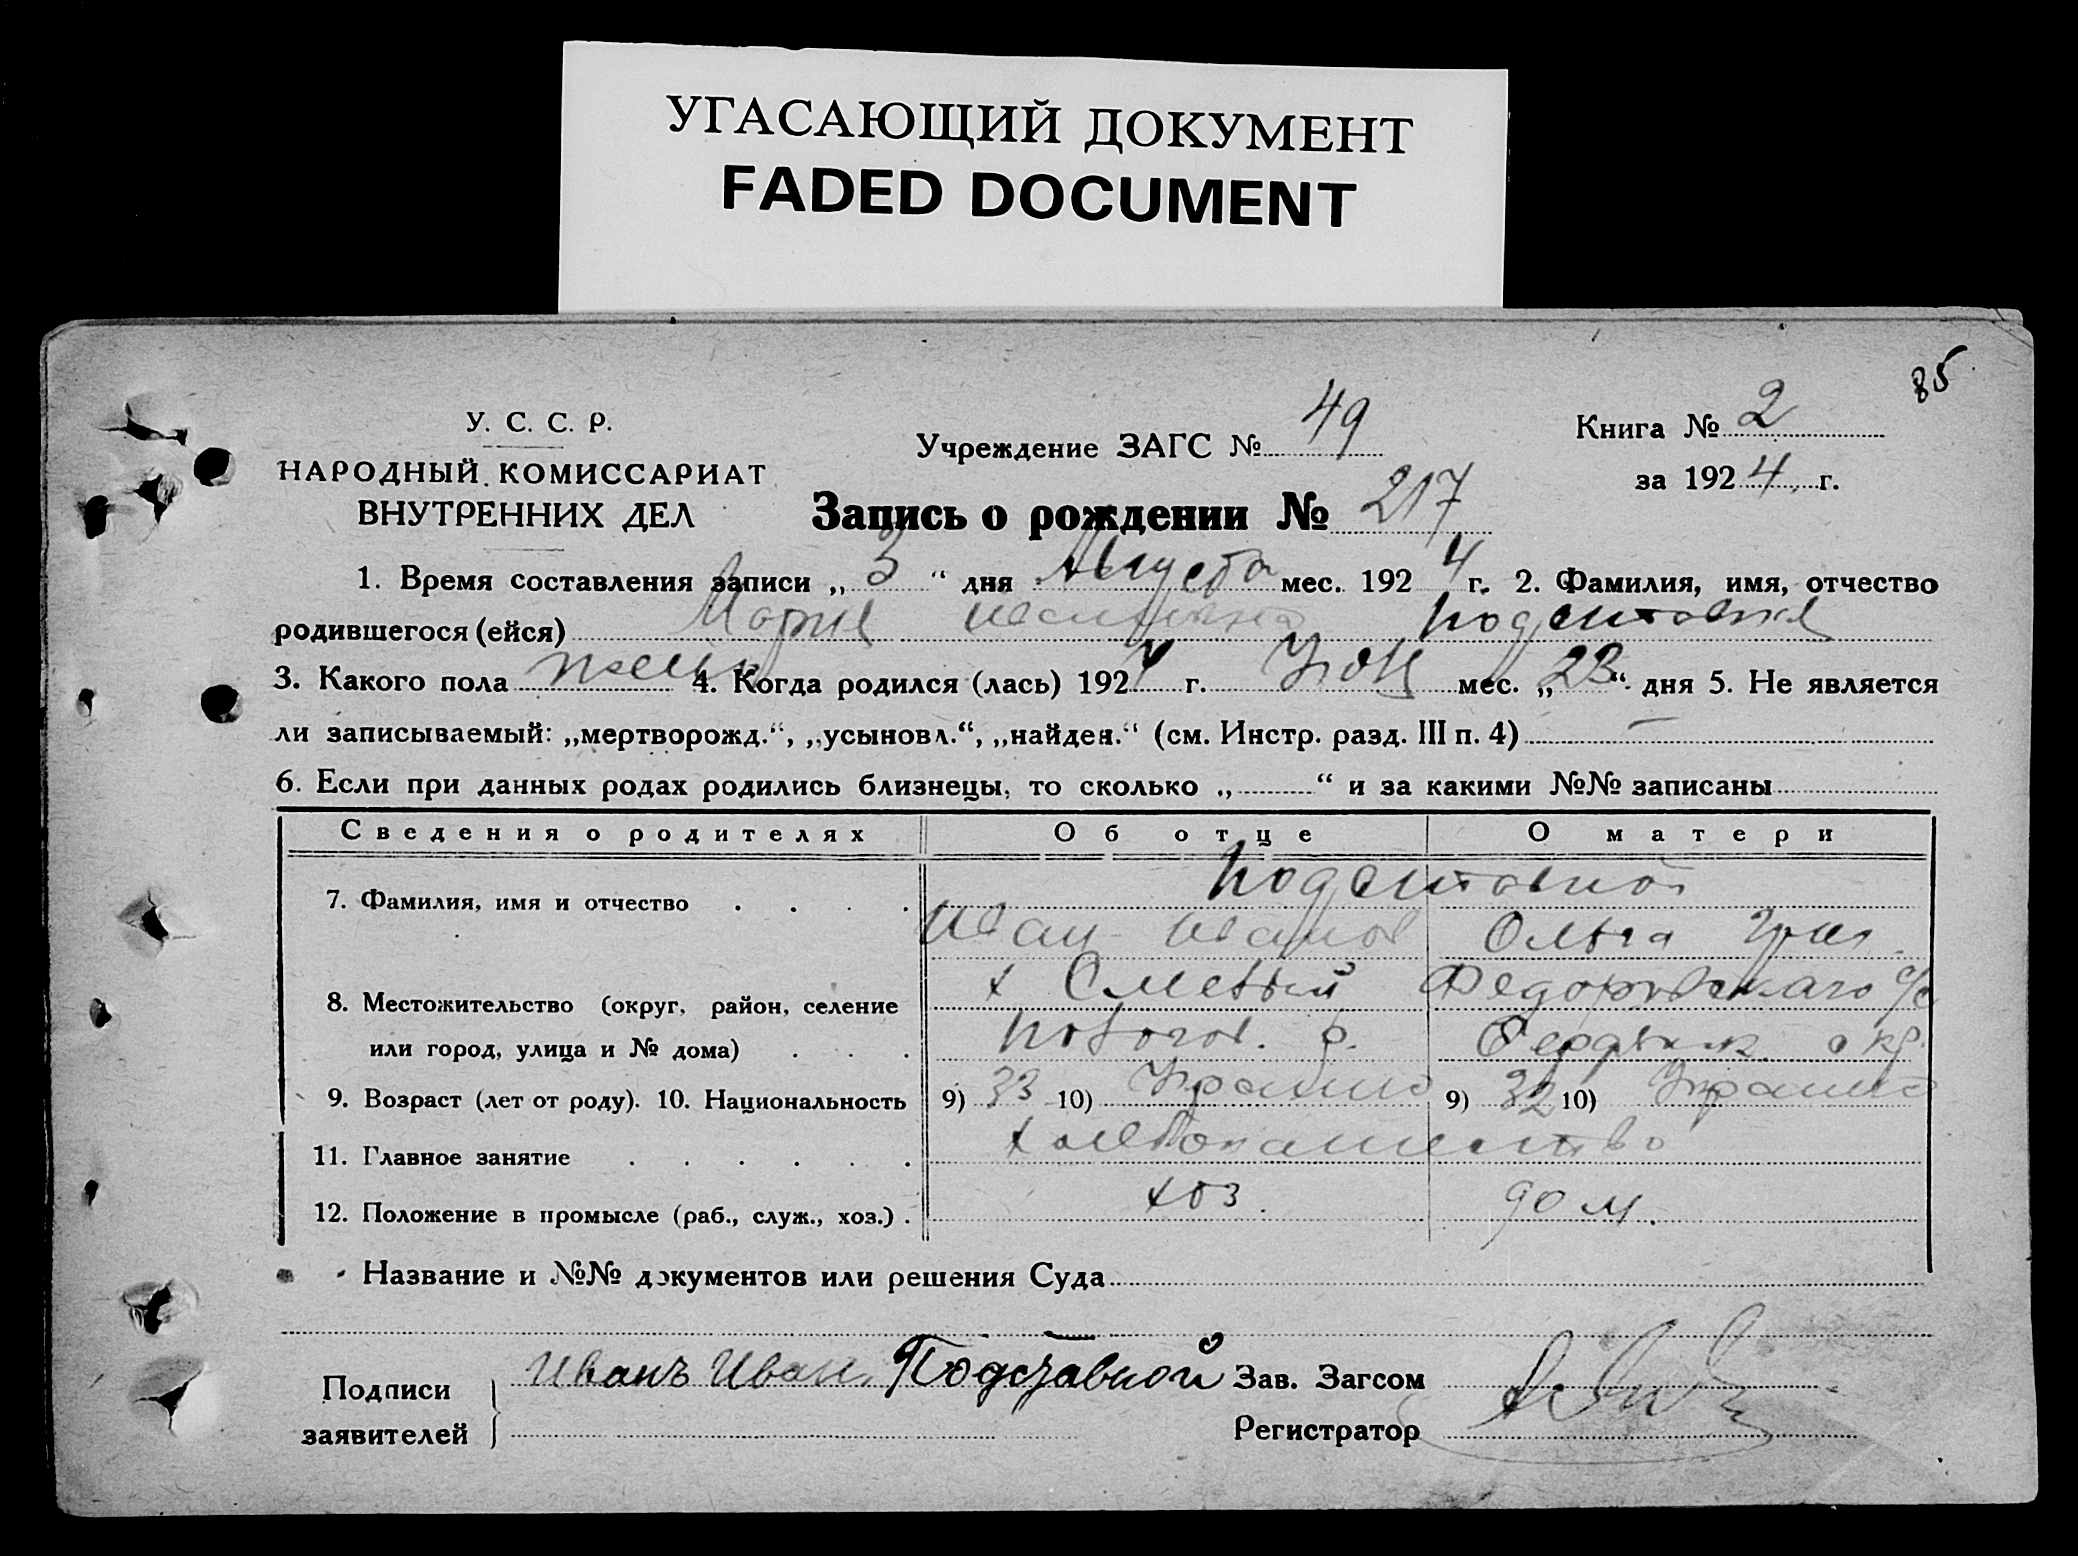 УГАСАЮЩИЙ ДОКУМЕНТ
FADED DOCUMENT
85
У. С. С. Р.
НАРОДНЫЙ КОМИССАРИАТ
ВНУТРЕННИХ ДЕЛ
Учреждение ЗАГС № 49
Книга № 2
за 1924 г.
Запись о рождении № 217
1. Время составления записи „ 3 “ дня Августа мес. 1924 г. 2. Фамилия, имя, отчество
родившегося (ейся) Мария Ивановна Подставная
3. Какого пола женск 4. Когда родился (лась) 1924 г. мес. „ 23 “ дня 5. Не является
ли записываемый: „мертворожд.“, „усыновл.“, „найден.“ (см. Инстр. разд. III п. 4) —
6. Если при данных родах родились близнецы, то сколько „ “ и за какими №№ записаны
Сведения о родителях Об отце О матери
7. Фамилия, имя и отчество Подставной
Иван Иванов Ольга Григ.
8. Местожительство (округ, район, селение х Федоровскаго с/с
или город, улица и № дома) Новогов. р. окр.
9. Возраст (лет от роду). 10. Национальность 9) 33 10) Украине 9) 32 10) Украинс
11. Главное занятие хлебопашество
12. Положение в промысле (раб., служ., хоз.) хоз. дом.
Название и №№ документов или решения Суда
Подписи заявителей Иванъ Иван. Подставной
Зав. Загсом
Регистратор